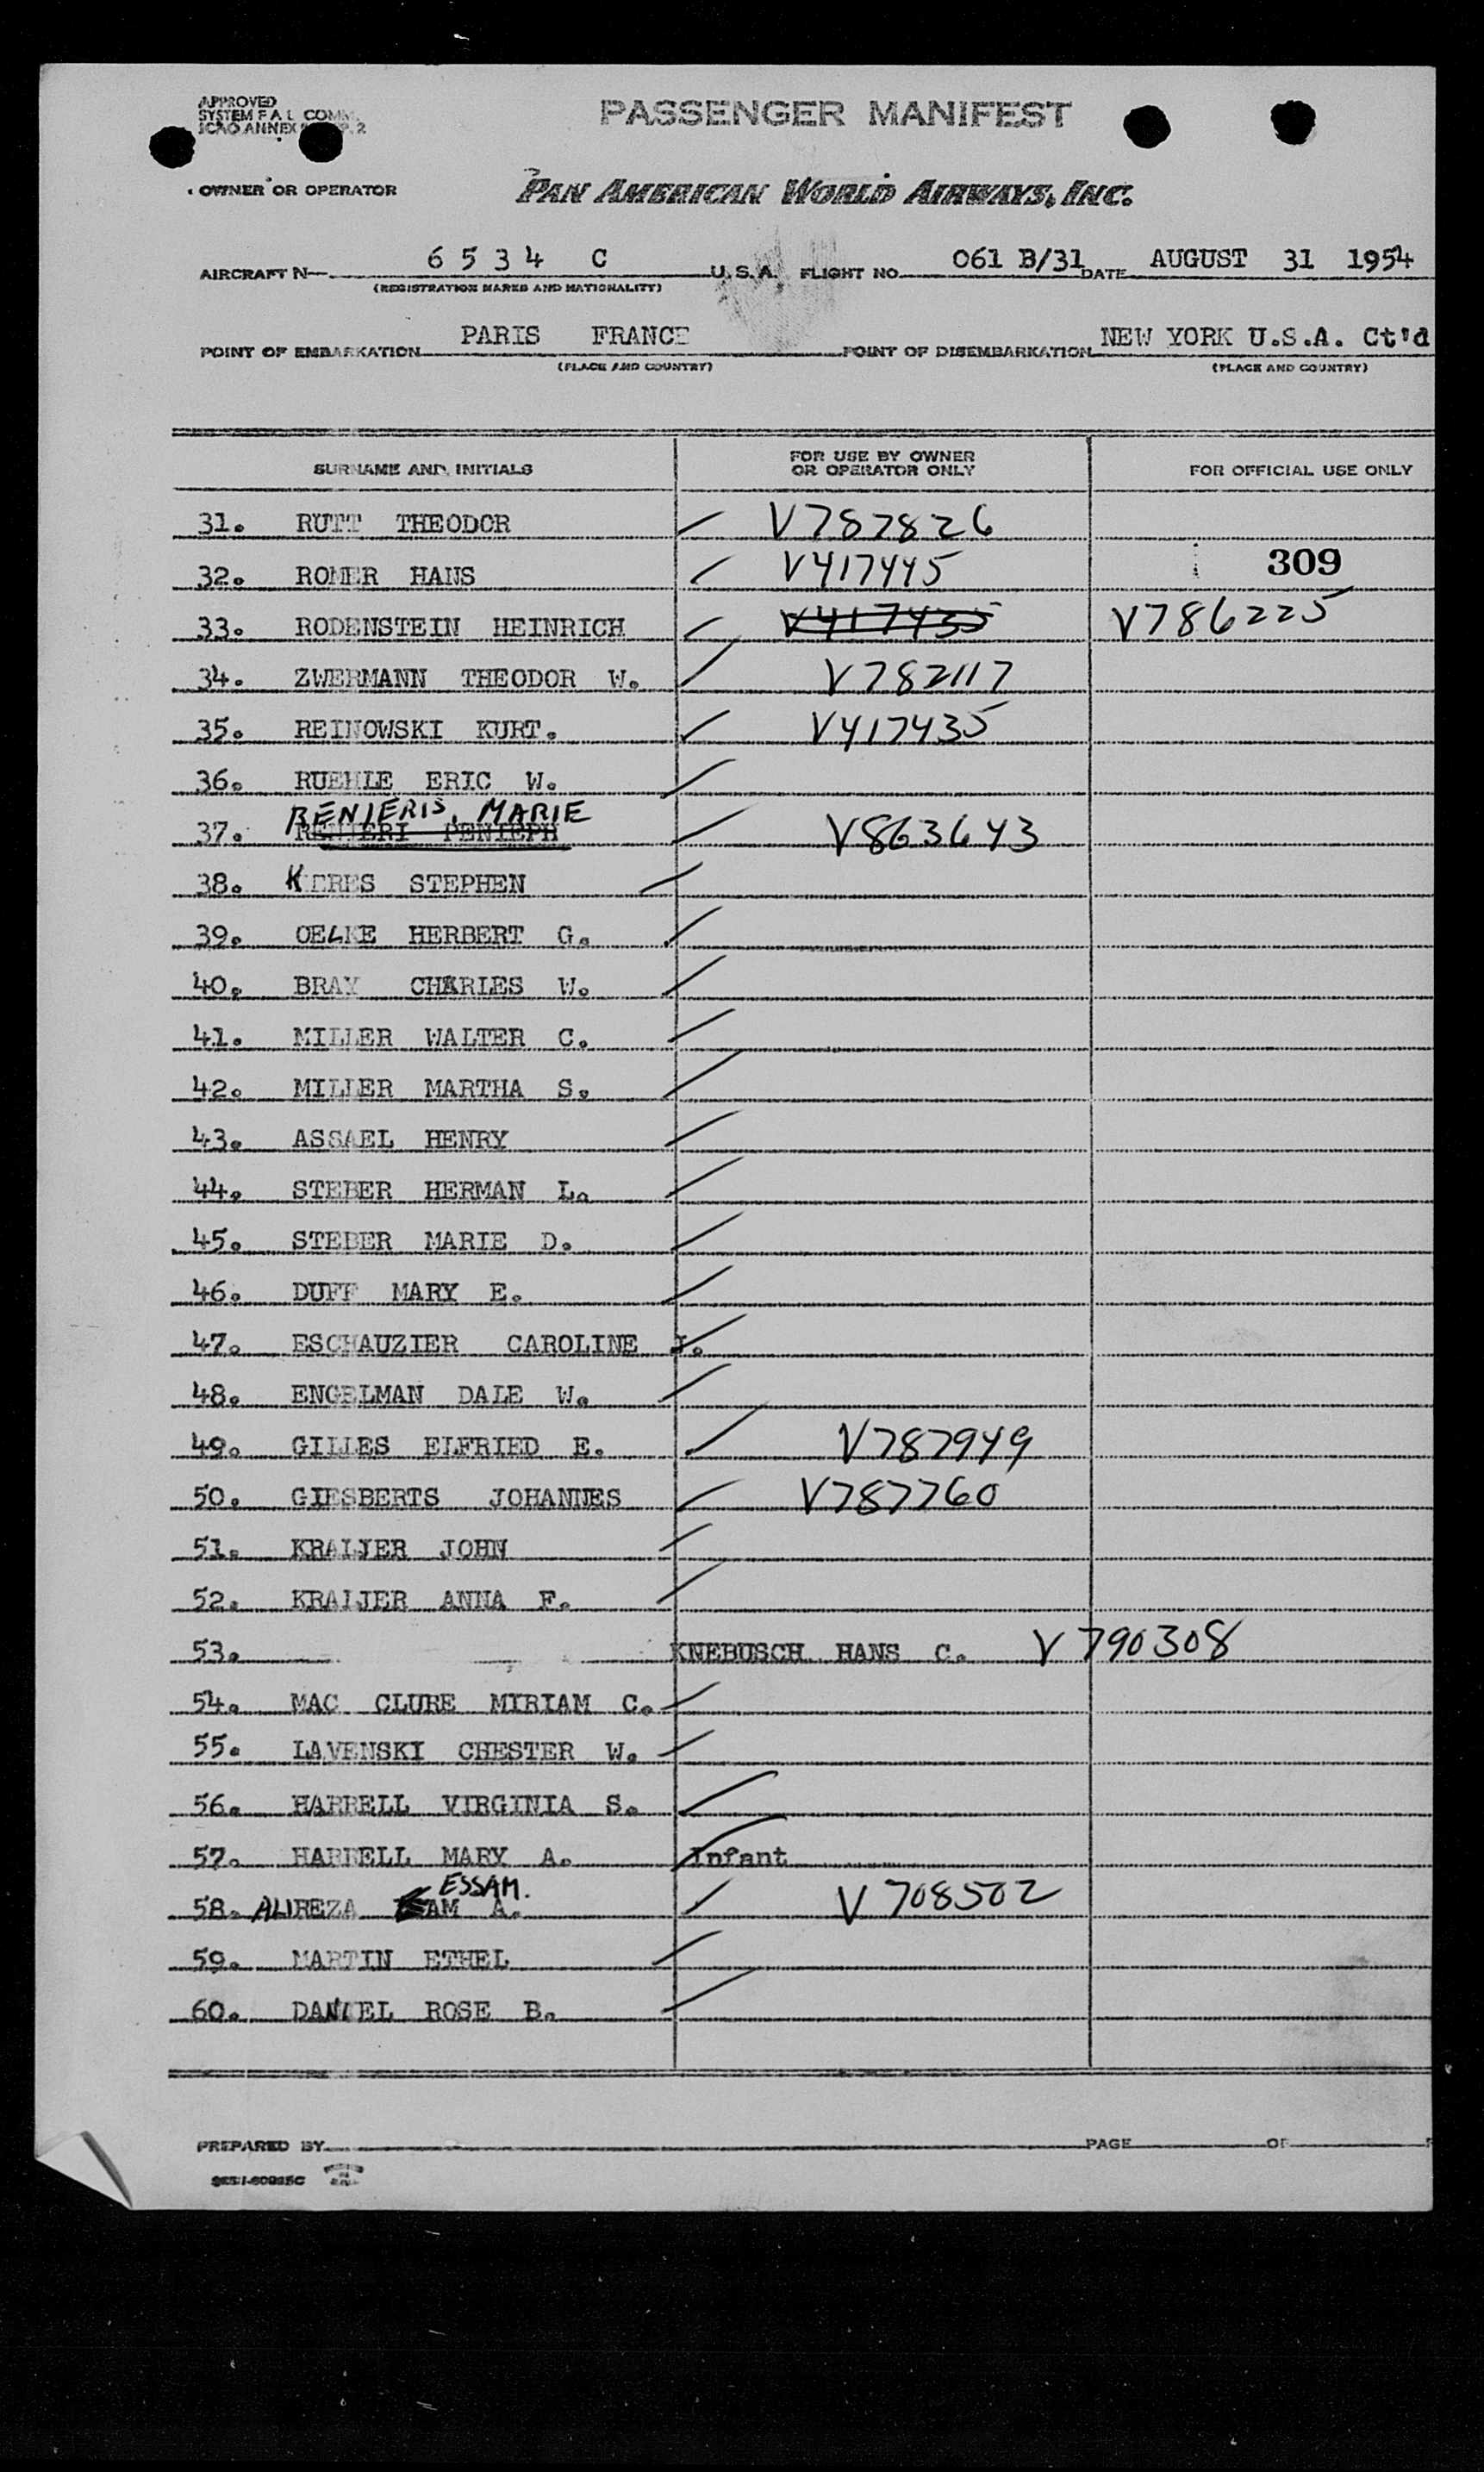 APPROVED
SYSTEM F A L COMM.
ICAO ANNEX P. 2
PASSENGER MANIFEST
OWNER OR OPERATOR
PAN AMERICAN WORLD AIRWAYS, INC.
AIRCRAFT N— 6534 C U.S.A. FLIGHT NO. 061 B/31 DATE AUGUST 31 1954
(REGISTRATION MARKS AND NATIONALITY)
POINT OF EMBARKATION PARIS FRANCE POINT OF DISEMBARKATION NEW YORK U.S.A. Ct'd
(PLACE AND COUNTRY) (PLACE AND COUNTRY)
SURNAME AND INITIALS FOR USE BY OWNER OR OPERATOR ONLY FOR OFFICIAL USE ONLY
31. RUTT THEODOR V787826
32. ROMER HANS V417445 309
33. RODENSTEIN HEINRICH V417435 V786225
34. ZWERMANN THEODOR W. V782117
35. REINOWSKI KURT. V417435
36. RUEHLE ERIC W.
RENIERIS, MARIE
37. RENIERI PENIEPH V863643
38. KERES STEPHEN
39. OELKE HERBERT G.
40. BRAY CHARLES W.
41. MILLER WALTER C.
42. MILLER MARTHA S.
43. ASSAEL HENRY
44. STEBER HERMAN L.
45. STEBER MARIE D.
46. DUFF MARY E.
47. ESCHAUZIER CAROLINE I.
48. ENGELMAN DALE W.
49. GILLES ELFRIED E. V787949
50. GIESBERTS JOHANNES V787760
51. KRAIJER JOHN
52. KRAIJER ANNA F.
53. KNEBUSCH HANS C. V790308
54. MAC CLURE MIRIAM C.
55. LAVENSKI CHESTER W.
56. HARRELL VIRGINIA S.
57. HARRELL MARY A. Infant
ESSAM.
58. ALIREZA AM A. V708502
59. MARTIN ETHEL
60. DANIEL ROSE B.
PREPARED BY PAGE OF